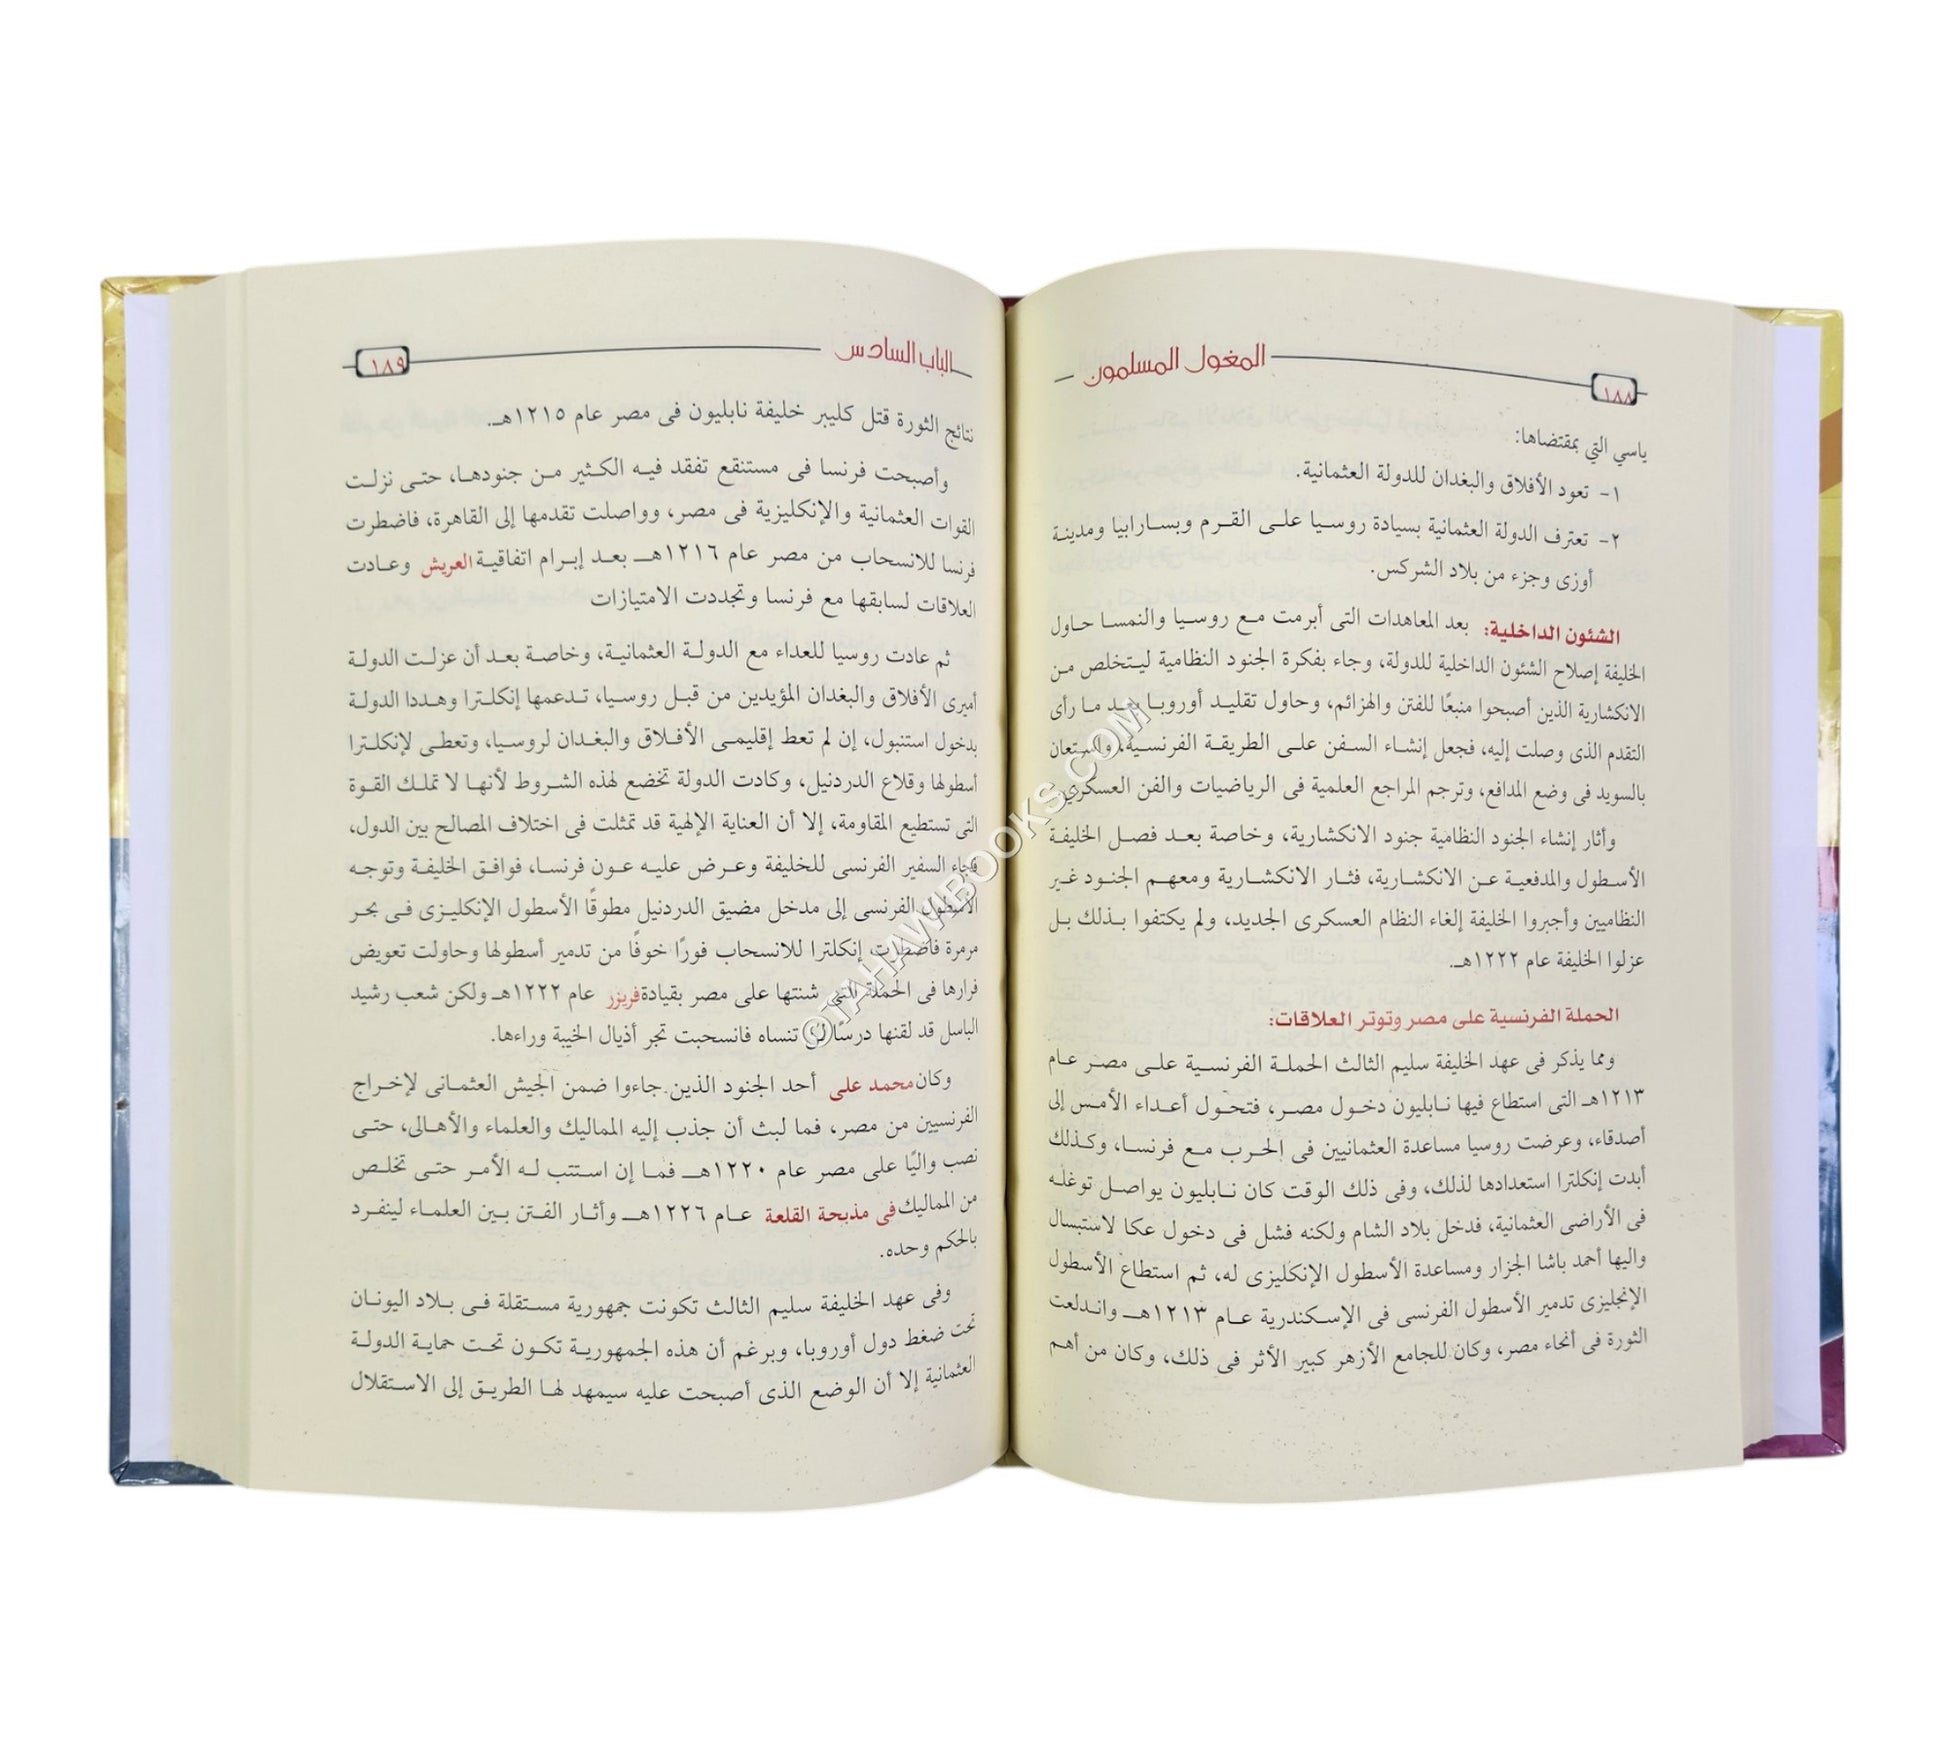 ١٨٨ المغول المسلمون
ياسي التي بمقتضاها:
١- تعود الأفلاق والبغدان للدولة العثمانية.
٢- تعترف الدولة العثمانية بسيادة روسيا على القرم وبسارابيا ومدينة
أوزى وجزء من بلاد الشركس.
الشئون الداخلية: بعد المعاهدات التى أبرمت مع روسيا والنمسا حاول
الخليفة إصلاح الشئون الداخلية للدولة، وجاء بفكرة الجنود النظامية ليتخلص من
الانكشارية الذين أصبحوا منبعًا للفتن والهزائم، وحاول تقليد أوروبا بعد ما رأى
التقدم الذى وصلت إليه، فجعل إنشاء السفن على الطريقة الفرنسية، واستعان
بالسويد فى وضع المدافع، وترجم المراجع العلمية فى الرياضيات والفن العسكرى.
وأثار إنشاء الجنود النظامية جنود الانكشارية، وخاصة بعد فصل الخليفة
الأسطول والمدفعية عن الانكشارية، فثار الانكشارية ومعهم الجنود غير
النظاميين وأجبروا الخليفة إلغاء النظام العسكرى الجديد، ولم يكتفوا بذلك بل
عزلوا الخليفة عام ١٢٢٢هـ.
الحملة الفرنسية على مصر وتوتر العلاقات:
ومما يذكر فى عهد الخليفة سليم الثالث الحملة الفرنسية على مصر عام
١٢١٣هـ التى استطاع فيها نابليون دخول مصر، فتحول أعداء الأمس إلى
أصدقاء، وعرضت روسيا مساعدة العثمانيين فى الحرب مع فرنسا، وكذلك
أبدت إنكلترا استعدادها لذلك، وفى ذلك الوقت كان نابليون يواصل توغله
فى الأراضى العثمانية، فدخل بلاد الشام ولكنه فشل فى دخول عكا لاستبسال
واليها أحمد باشا الجزار ومساعدة الأسطول الإنكليزى له، ثم استطاع الأسطول
الإنجليزى تدمير الأسطول الفرنسى فى الإسكندرية عام ١٢١٣هـ واندلعت
الثورة فى أنحاء مصر، وكان للجامع الأزهر كبير الأثر فى ذلك، وكان من أهم
الباب السادس ١٨٩
نتائج الثورة قتل كليبر خليفة نابليون فى مصر عام ١٢١٥هـ.
وأصبحت فرنسا فى مستنقع تفقد فيه الكثير من جنودها، حتى نزلت
القوات العثمانية والإنكليزية فى مصر، وواصلت تقدمها إلى القاهرة، فاضطرت
فرنسا للانسحاب من مصر عام ١٢١٦هـ بعد إبرام اتفاقية العريش وعادت
العلاقات لسابقها مع فرنسا وتجددت الامتيازات
ثم عادت روسيا للعداء مع الدولة العثمانية، وخاصة بعد أن عزلت الدولة
أميرى الأفلاق والبغدان المؤيدين من قبل روسيا، تدعمها إنكلترا وهددا الدولة
بدخول استنبول، إن لم تعط إقليمى الأفلاق والبغدان لروسيا، وتعطى لإنكلترا
أسطولها وقلاع الدردنيل، وكادت الدولة تخضع لهذه الشروط لأنها لا تملك القوة
التى تستطيع المقاومة، إلا أن العناية الإلهية قد تمثلت فى اختلاف المصالح بين الدول،
فجاء السفير الفرنسى للخليفة وعرض عليه عون فرنسا، فوافق الخليفة وتوجه
الأسطول الفرنسى إلى مدخل مضيق الدردنيل مطوقًا الأسطول الإنكليزى فى بحر
مرمرة فاضطرت إنكلترا للانسحاب فورًا خوفًا من تدمير أسطولها وحاولت تعويض
فرارها فى الحملة التى شنتها على مصر بقيادة فريزر عام ١٢٢٢هـ ولكن شعب رشيد
الباسل قد لقنها درسًا لن تنساه فانسحبت تجر أذيال الخيبة وراءها.
وكان محمد على أحد الجنود الذين جاءوا ضمن الجيش العثمانى لإخراج
الفرنسيين من مصر، فما لبث أن جذب إليه المماليك والعلماء والأهالى، حتى
نصب واليًا على مصر عام ١٢٢٠هـ فما إن استتب له الأمر حتى تخلص
من المماليك فى مذبحة القلعة عام ١٢٢٦هـ وأثار الفتن بين العلماء لينفرد
بالحكم وحده.
وفى عهد الخليفة سليم الثالث تكونت جمهورية مستقلة فى بلاد اليونان
تحت ضغط دول أوروبا، وبرغم أن هذه الجمهورية تكون تحت حماية الدولة
العثمانية إلا أن الوضع الذى أصبحت عليه سيمهد لها الطريق إلى الاستقلال
©TAHAWIBOOKS.COM